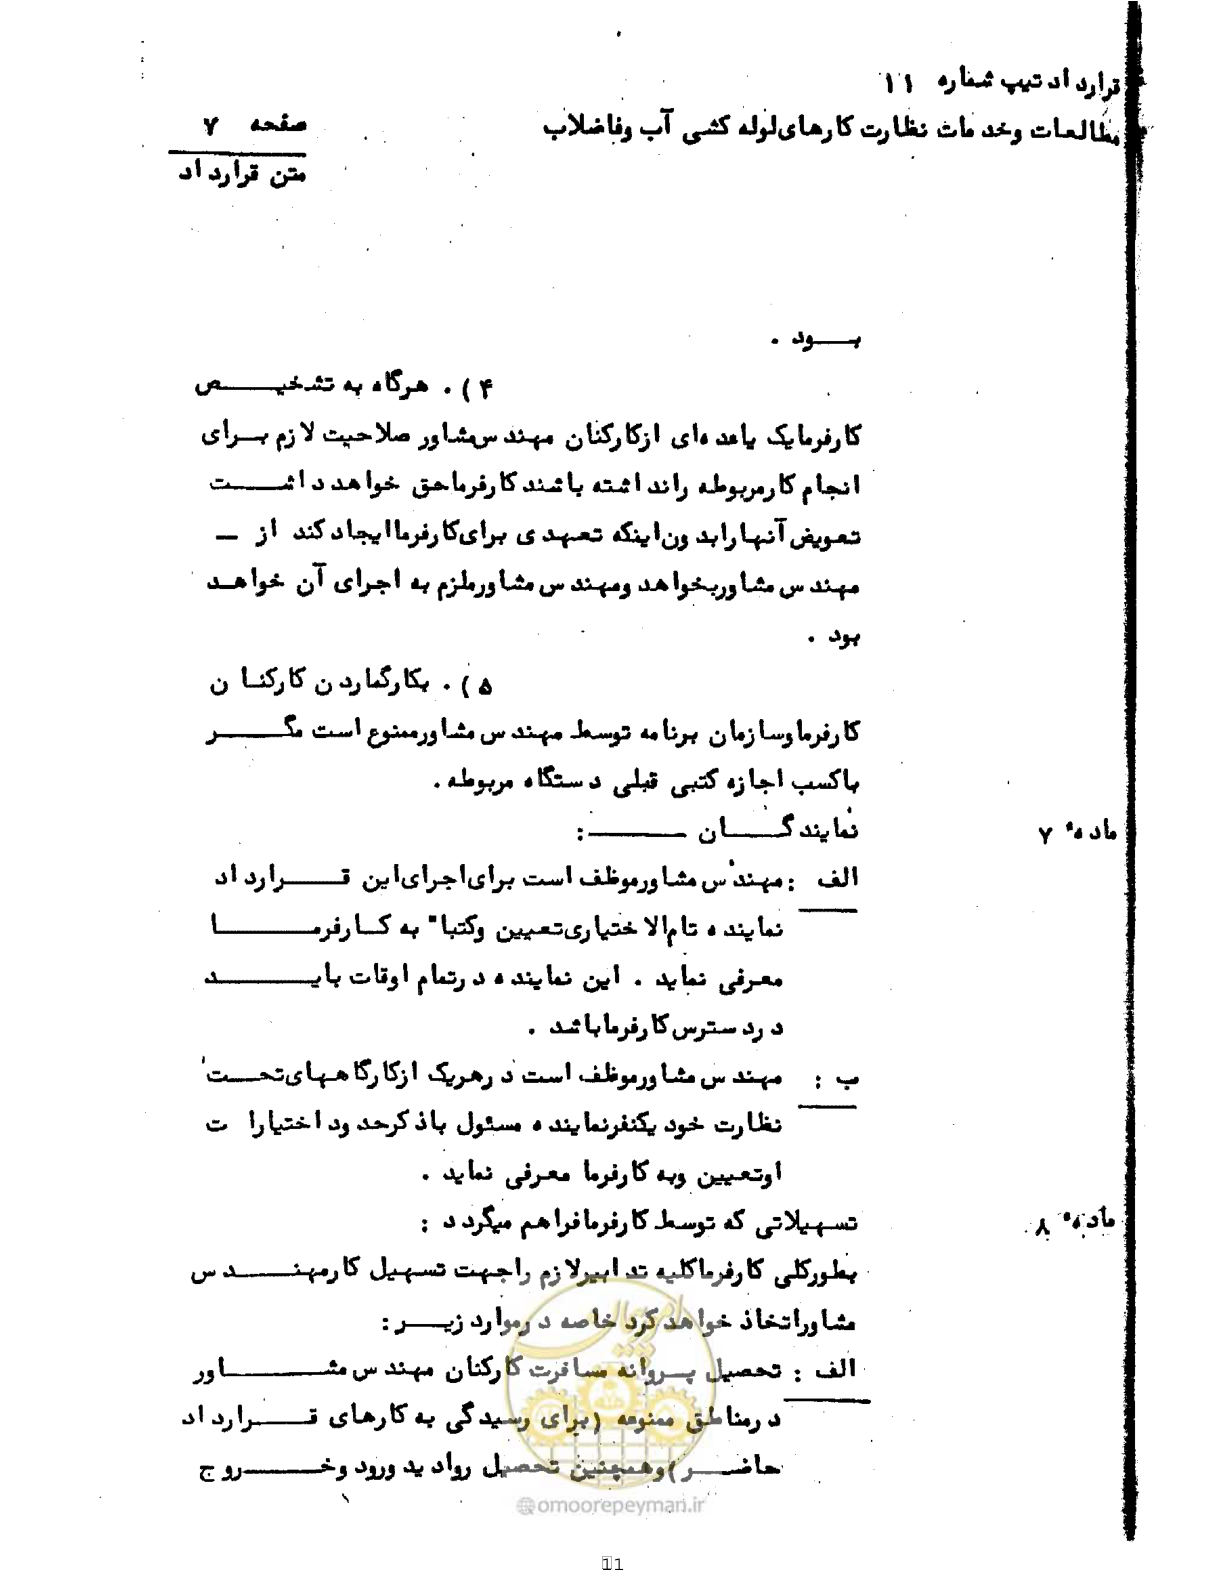 قرارداد تیپ شماره ۱۱
مطالعات وخدمات نظارت کارهای لوله کشی آب وفاضلاب
صفحه ۷
متن قرارداد
بود .
۴ ) . هرگاه به تشخیص
کارفرمایک یاعده ای ازکارکنان مهندس مشاور صلاحیت لازم برای
انجام کارمربوطه رانداشته باشند کارفرماحق خواهد داشت
تعویض آنهارابدون اینکه تعهدی برای کارفرماایجاد کند از —
مهندس مشاوربخواهد ومهندس مشاورملزم به اجرای آن خواهد
بود .
۵ ) . بکارگماردن کارکنان
کارفرماوسازمان برنامه توسط مهندس مشاورممنوع است مگر
باکسب اجازه کتبی قبلی دستگاه مربوطه .
ماده ۷
نمایندگان :
الف : مهندس مشاورموظف است برای اجرای این قرارداد
نماینده تام الاختیاری تعیین وکتبا" به کارفرما
معرفی نماید . این نماینده درتمام اوقات باید
دردسترس کارفرماباشد .
ب : مهندس مشاورموظف است درهریک ازکارگاههای تحت
نظارت خود یکنفرنماینده مسئول باذکرحدود اختیارات
اوتعیین وبه کارفرما معرفی نماید .
ماده ۸
تسهیلاتی که توسط کارفرمافراهم میگردد :
بطورکلی کارفرماکلیه تدابیرلازم راجهت تسهیل کارمهندس
مشاوراتخاذ خواهد کرد خاصه درموارد زیر :
الف : تحصیل پروانه مسافرت کارکنان مهندس مشاور
درمناطق ممنوعه (برای رسیدگی به کارهای قرارداد
حاضر)وهمچنین تحصیل روادید ورود وخروج
امور پیمان
@omoorepeyman.ir
11